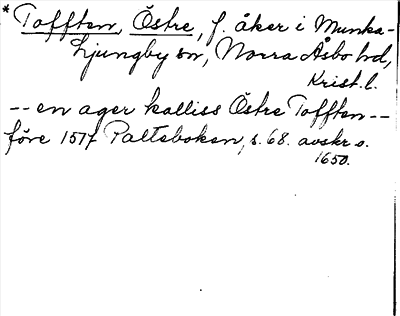 * Tofften, Östre, f. åker i Munka-
Ljungby sn, Norra Åsbo hd,
Krist. l.
-- en ager kalliss Östre Tofften --
före 1517 Paltebokan, s. 68. avskr o.
1650.